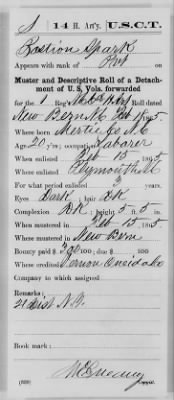 S | 14 H. Art'y. | U.S.C.T.
Boston Spark
Appears with rank of Pvt
Muster and Descriptive Roll of a Detachment of U. S. Vols. forwarded
for the 1 Reg't Roll dated
New Bern N.C. Feb 1865.
Where born Mertie Co N.C.
Age 20 y'rs; occupation Laborer
When enlisted Feb 15, 1865
Where enlisted Plymouth N.C.
For what period enlisted 3 years.
Eyes Dark; hair DK
Complexion DK; height 5 ft. 5 in.
When mustered in Feb 15, 1865
Where mustered in New Bern
Bounty paid $ 100; due $ 100
Where credited Vernon Oneida Co
Company to which assigned
Remarks:
21 Dist N.Y.
Book mark:
(339) Copyist.